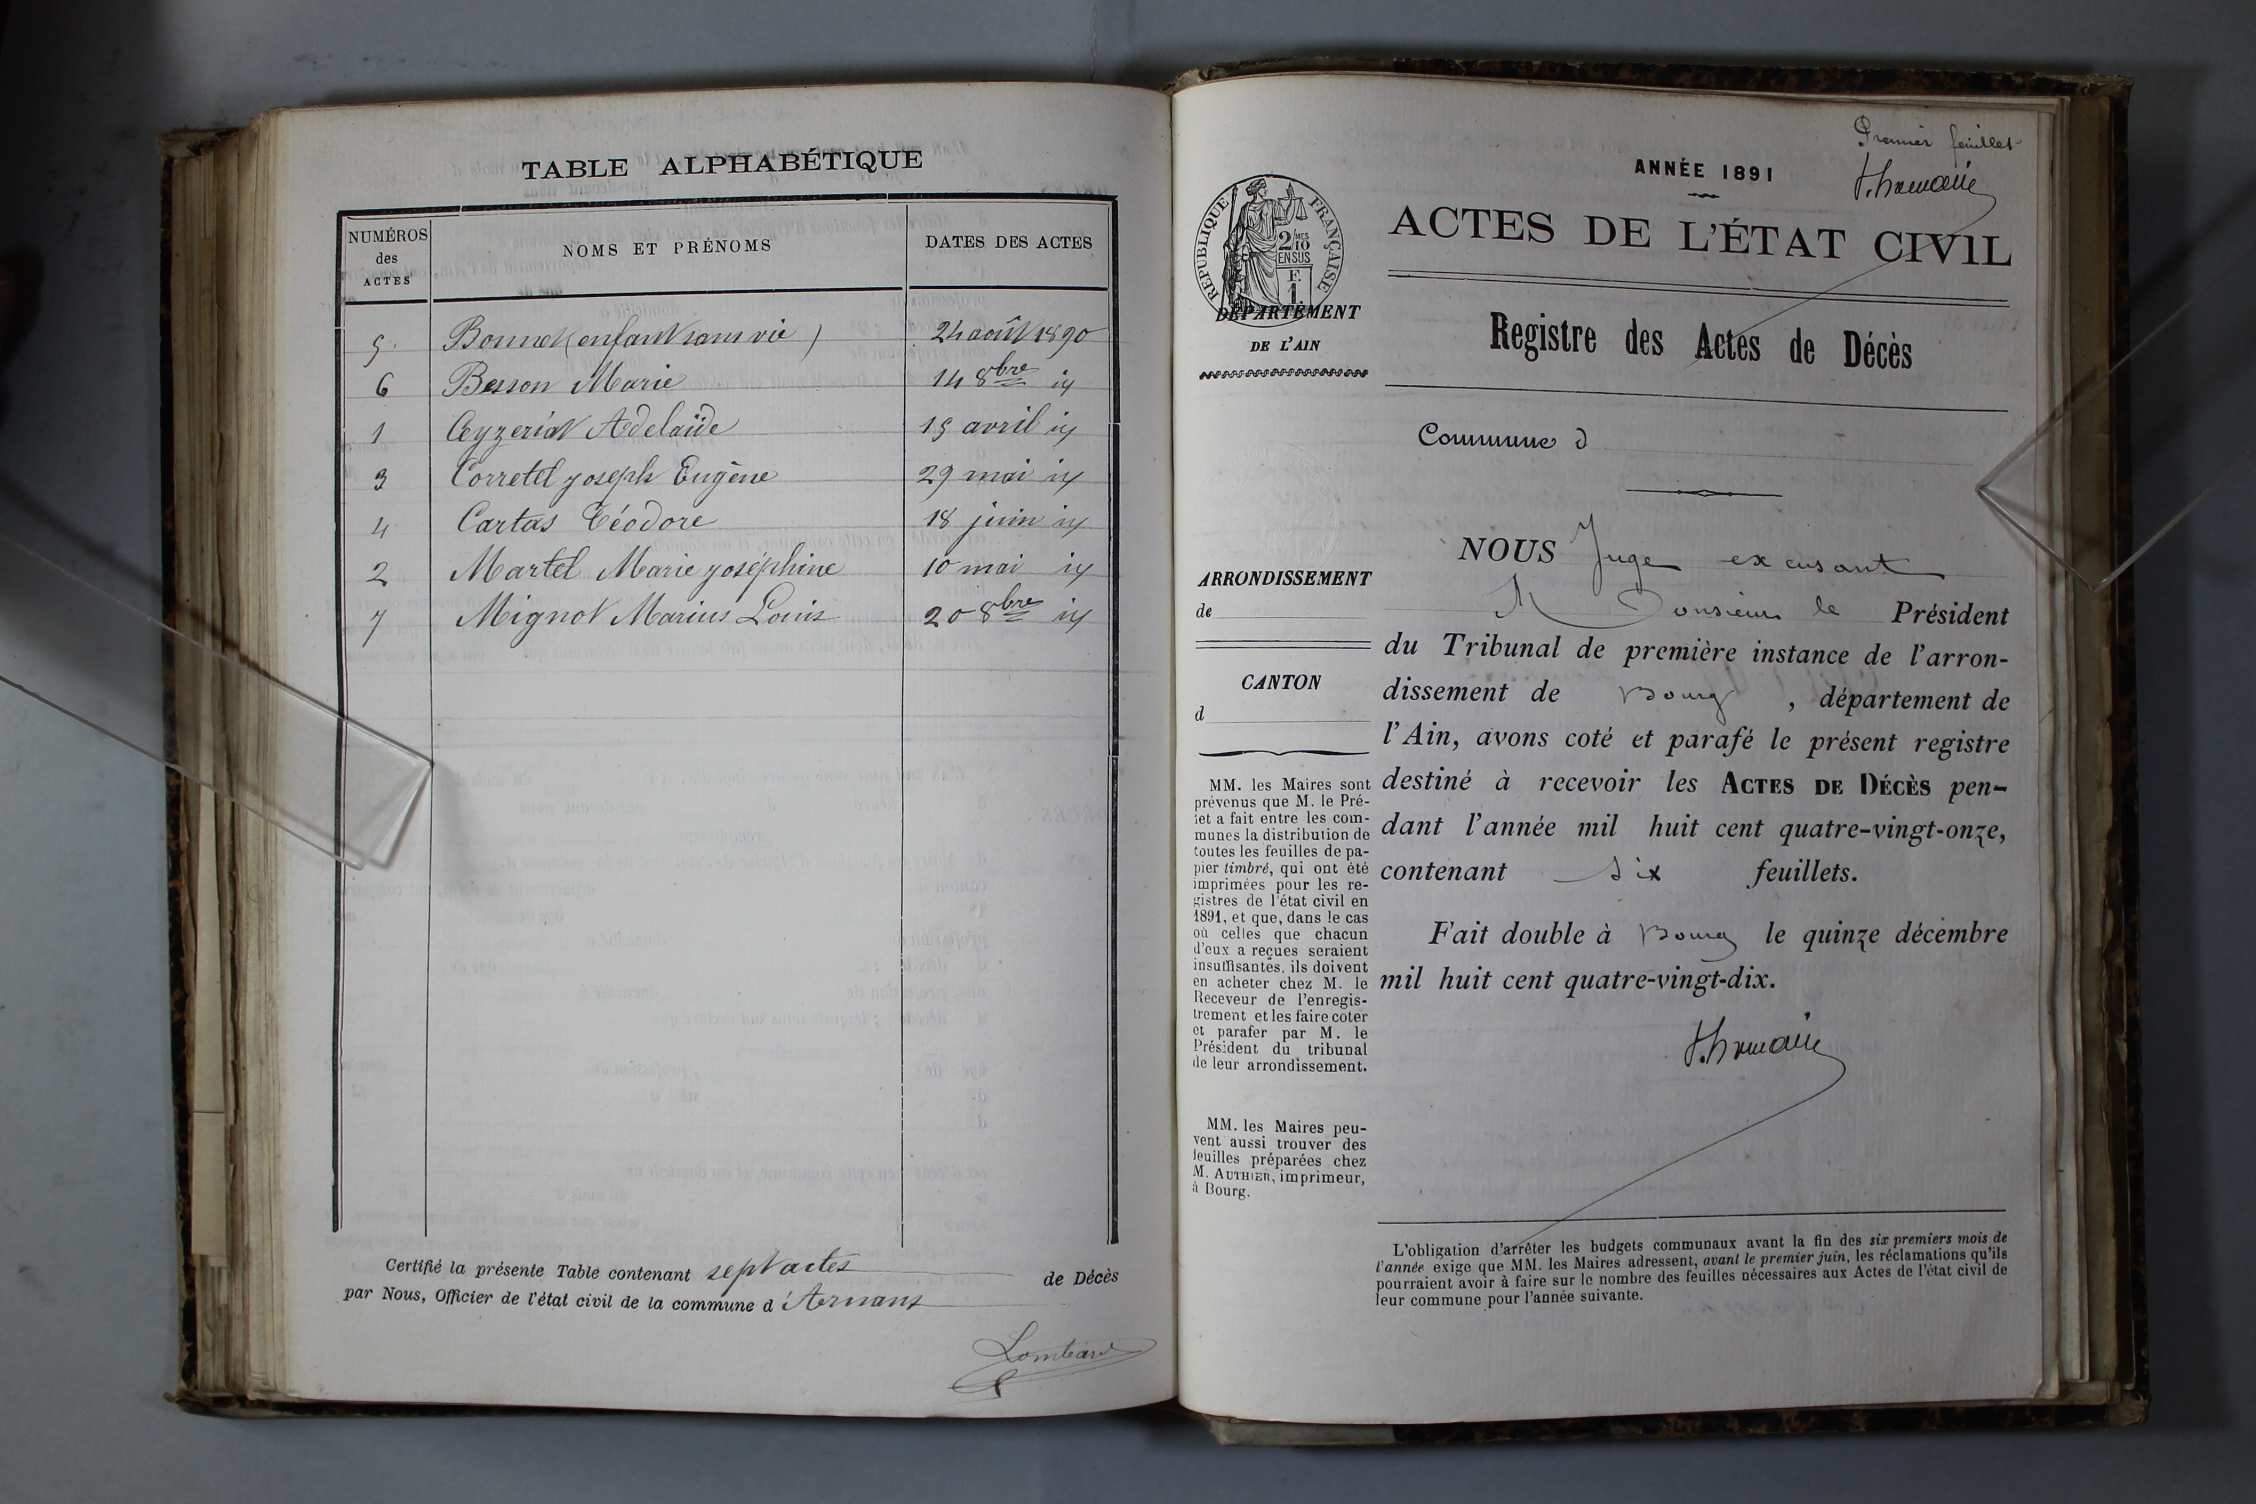 TABLE ALPHABÉTIQUE
NUMÉROS des ACTES
NOMS ET PRÉNOMS
DATES DES ACTES
5 Bonnet (enfant sans vie) 24 août 1890
6 Besson Marie 14 8bre id
1 Ceyzeriat Adelaïde 15 avril id
3 Corretel joseph Eugène 29 mai id
4 Cartas Téodore 18 juin id
2 Martel Marie joséphine 10 mai id
7 Mignot Marius Louis 20 8bre id
Certifié la présente Table contenant sept actes de Décès
par Nous, Officier de l'état civil de la commune d'Arnans
Lombard
Premier feuillet
ANNÉE 1891
ACTES DE L'ÉTAT CIVIL
RÉPUBLIQUE FRANÇAISE
2/10 MES
EN SUS
F
1
DÉPARTEMENT
DE L'AIN
Registre des Actes de Décès
Commune d
ARRONDISSEMENT
de
CANTON
d
MM. les Maires sont
prévenus que M. le Pré-
fet a fait entre les com-
munes la distribution de
toutes les feuilles de pa-
pier timbré, qui ont été
imprimées pour les re-
gistres de l'état civil en
1891, et que, dans le cas
où celles que chacun
d'eux a reçues seraient
insuffisantes, ils doivent
en acheter chez M. le
Receveur de l'enregis-
trement et les faire coter
et parafer par M. le
Président du tribunal
de leur arrondissement.
MM. les Maires peu-
vent aussi trouver des
feuilles préparées chez
M. AUTHIER, imprimeur,
à Bourg.
NOUS Juge excusant
Monsieur le Président
du Tribunal de première instance de l'arron-
dissement de Bourg, département de
l'Ain, avons coté et parafé le présent registre
destiné à recevoir les ACTES DE DÉCÈS pen-
dant l'année mil huit cent quatre-vingt-onze,
contenant six feuillets.
Fait double à Bourg le quinze décembre
mil huit cent quatre-vingt-dix.
L'obligation d'arrêter les budgets communaux avant la fin des six premiers mois de
l'année exige que MM. les Maires adressent, avant le premier juin, les réclamations qu'ils
pourraient avoir à faire sur le nombre des feuilles nécessaires aux Actes de l'état civil de
leur commune pour l'année suivante.